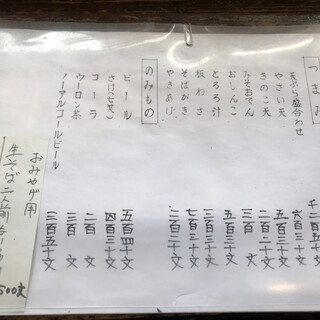 つまみ
天ぷら盛合わせ 千二百五十文
やさい天 六百三十文
きのこ天 五百三十文
みそおでん 五百文
おしんこ 五百三十文
とろろ汁 三百文
板わさ 三百三十文
そばがき 七百三十文
やきあげ 二百三十文
のみもの
ビール 五百四十文
さけ(七笑) 四百三十文
コーラ 二百文
ウーロン茶 三百文
ノーアルコールビール 三百五十文
おみやげ用
生そば二人前
500文